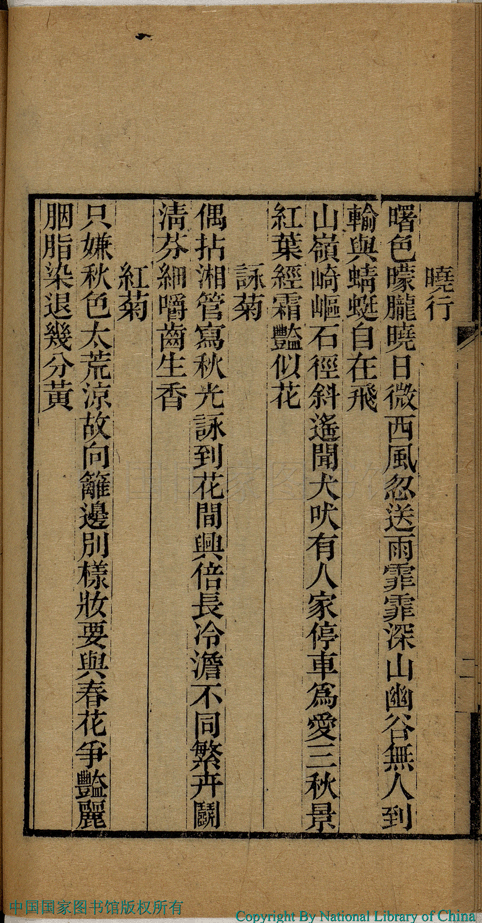 曉行
曙色曚朧曉日微西風忽送雨霏霏深山幽谷無人到
輸與蜻蜓自在飛
山嶺崎嶇石徑斜遙聞犬吠有人家停車爲愛三秋景
紅葉經霜豔似花
詠菊
偶拈湘管寫秋光詠到花間興倍長冷澹不同繁卉鬬
清芬細嚼齒生香
紅菊
只嫌秋色太荒涼故向籬邊別樣妝要與春花爭豔麗
胭脂染退幾分黃
二
中国国家图书馆版权所有
Copyright By National Library of China